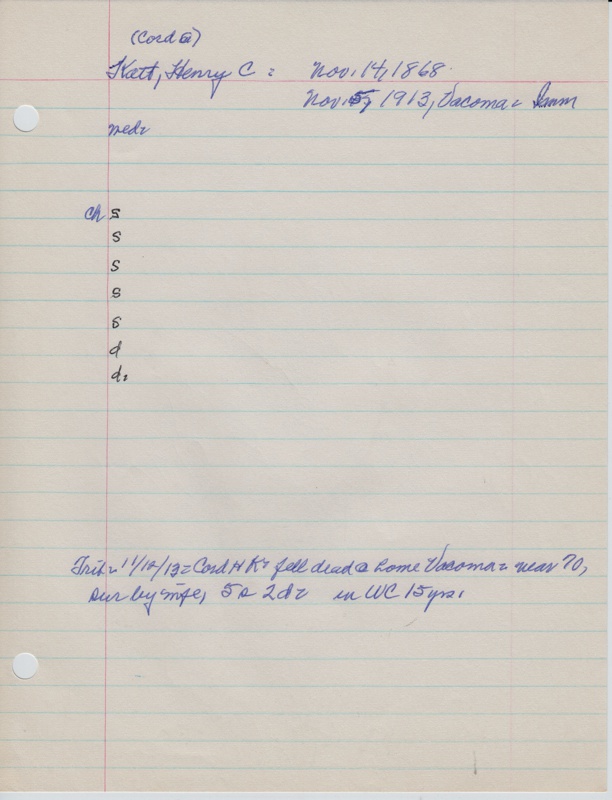 (Cord)
Katt, Henry C = Nov. 14, 1868
Nov. 5, 1913, Vacoma = Imm
med=
ch s
s
s
s
s
d
d=
Trib = 11/12/13 = Cord H K = fell dead @ home Vacoma = near 70,
sur by wife, 5 s 2 d = in WC 15 yrs.